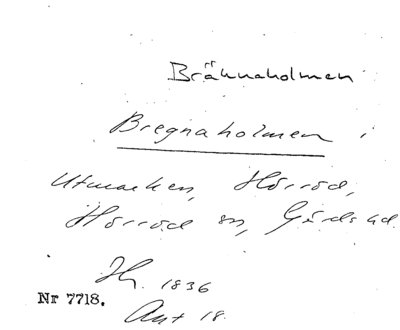 Brähnaholmen
Bregnaholmen i
Utmarken, Hörröd,
Hörröd sn, Gärds hd.
1836
Nr 7718.
Akt 18.